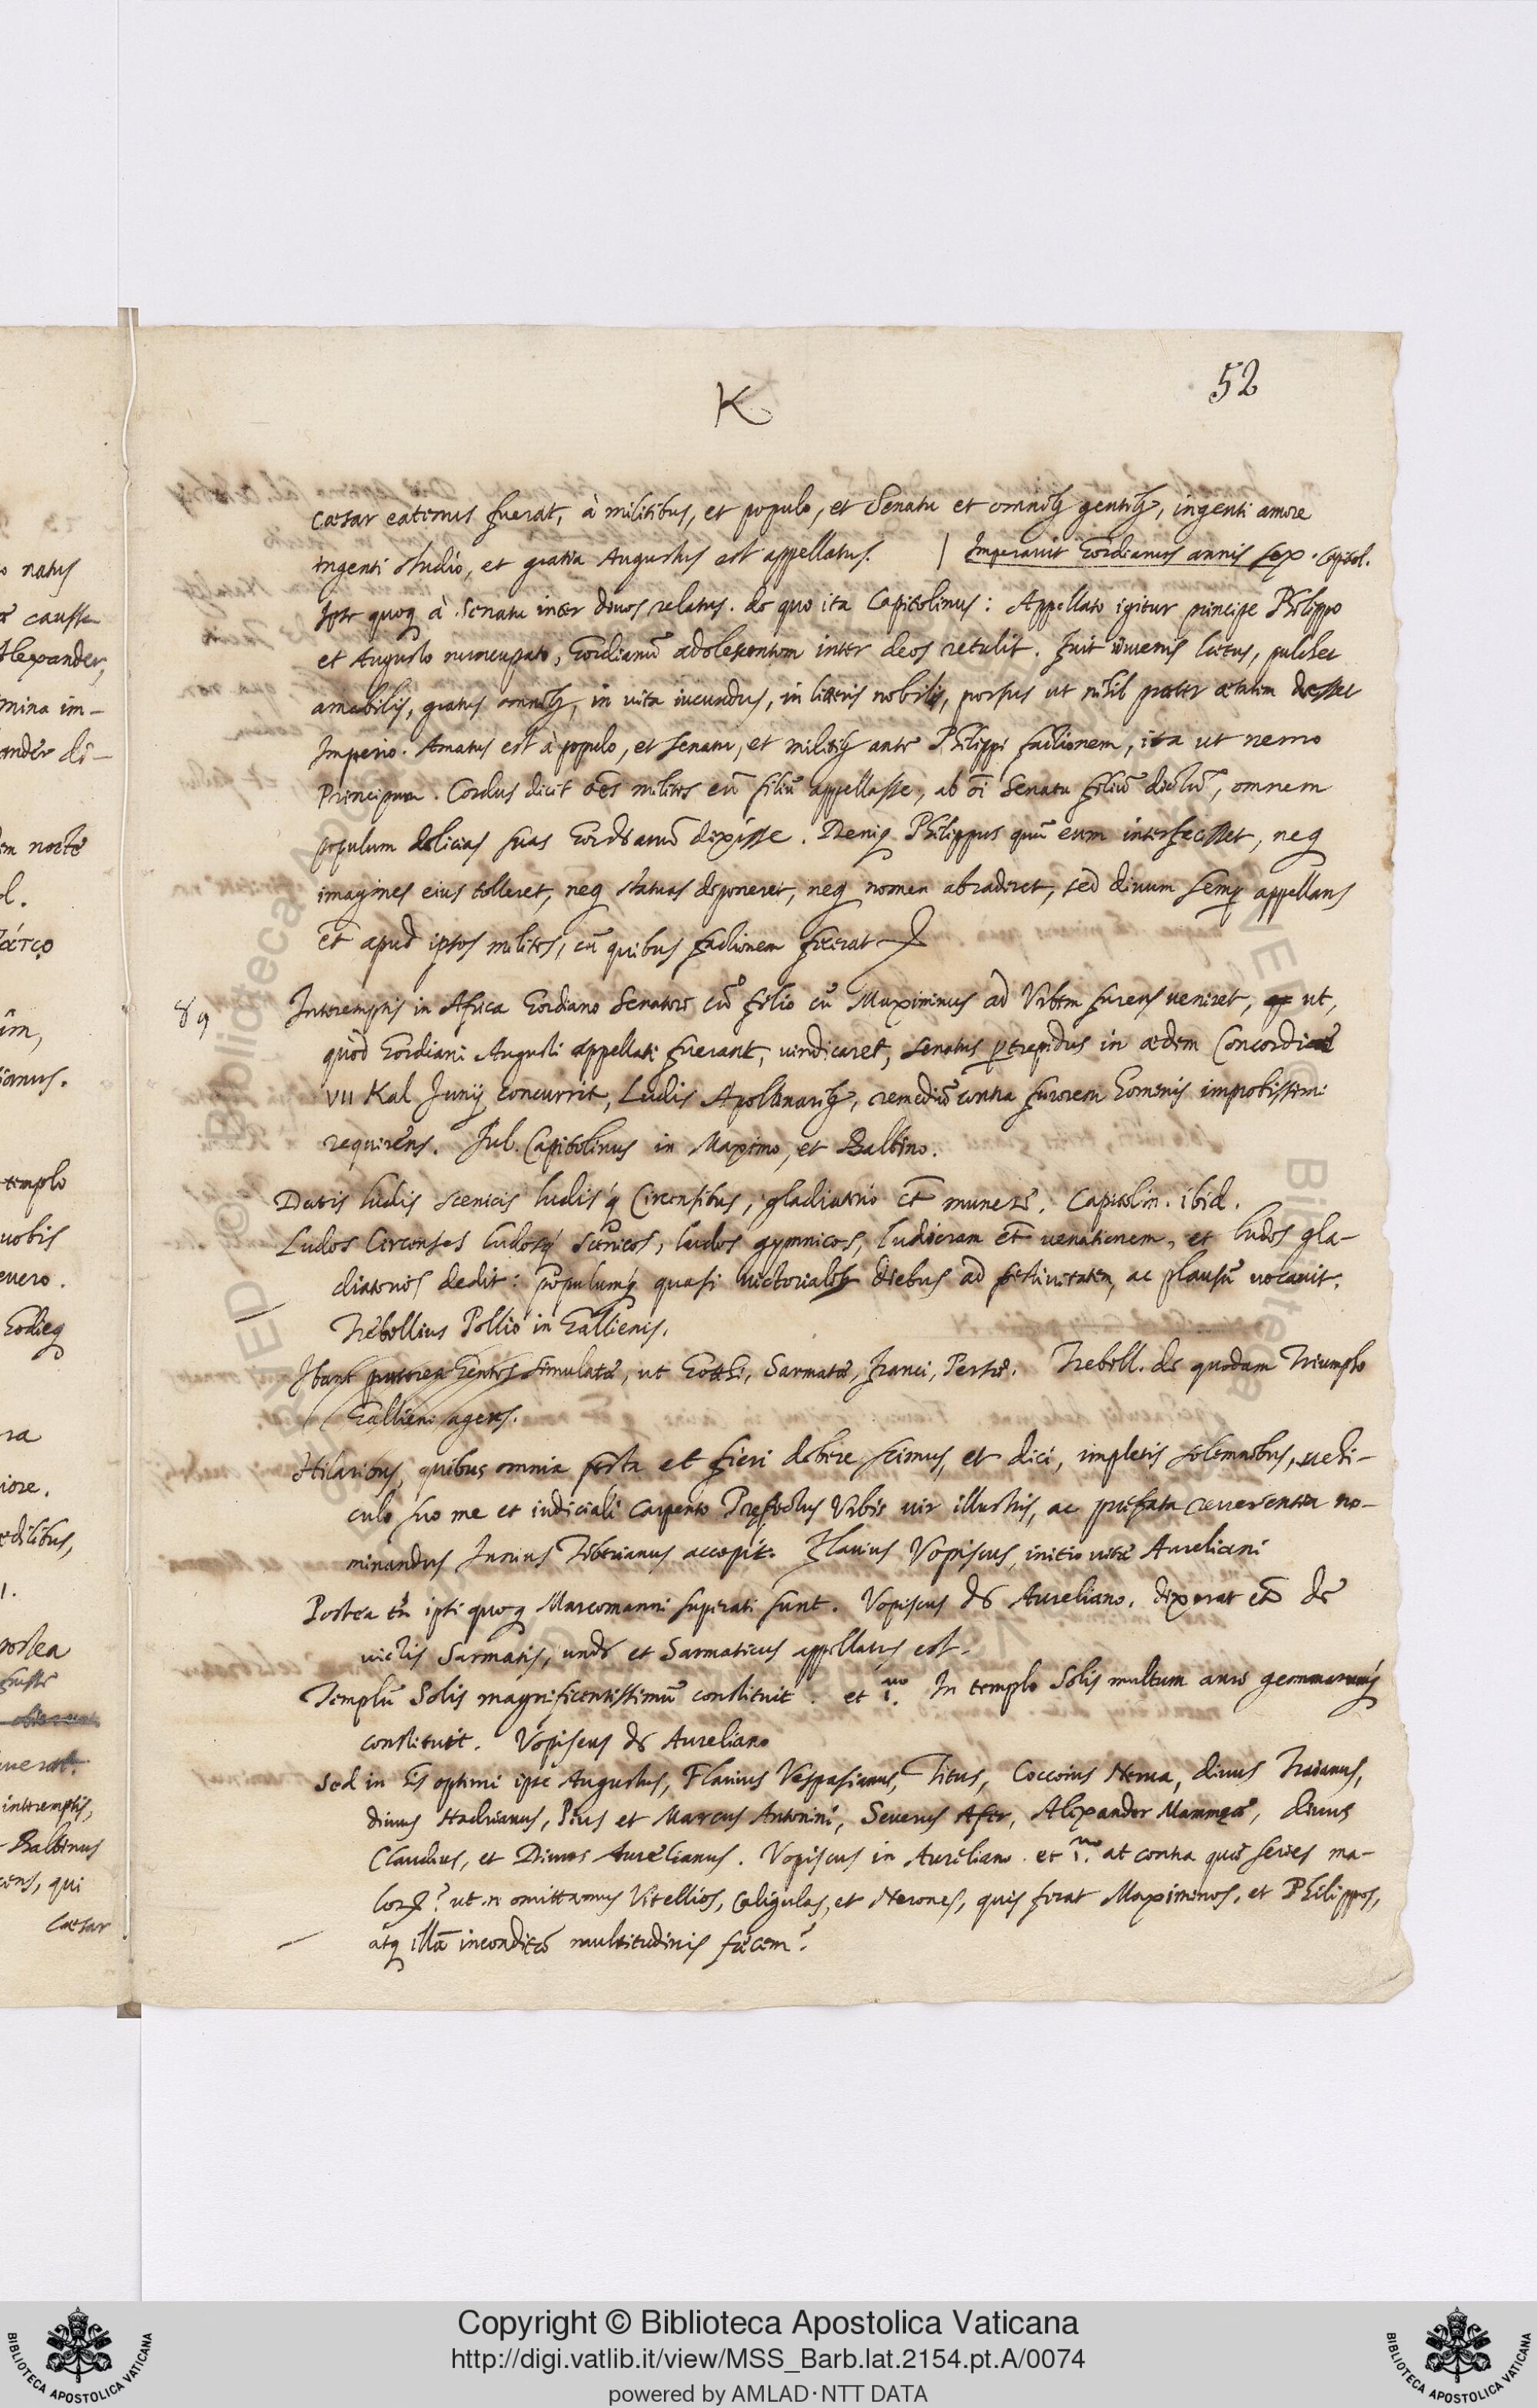 K
52
Cæsar eatenus fuerat, à militibus, et populo, et Senatu et omnibꝫ gentibꝫ, ingenti amore
ingenti studio, et gratia Augustus est appellatus. | Imperavit Gordianus annis sex. Capitol.
Iste quoqꝫ à Senatu inter divos relatus. de quo ita Capitolinus: Appellato igitur principe Philippo
et Augusto nuncupato, Gordianũ adolescentem inter deos retulit. Fuit iuvenis lætus, pulcher
amabilis, gratus omnibꝫ, in vita iucundus, in litteris nobilis, porsus ut nihil præter ætatem deesset
Imperio. Amatus est à populo, et senatu, et militibꝫ ante Philippi factionem, ita ut nemo
Principum. Cordus dicit oẽs milites eũ filiũ appellasse, ab oĩ Senatu filiũ dictũ, omnem
populum delicias suas Gordianũ dixisse. Deniqꝫ Philippus quũ eum interfecisset, neqꝫ
imagines eius tolleret, neqꝫ statuas deponeret, neqꝫ nomen abraderet, sed divum semꝑ appellans
et apud ipsos milites, cũ quibus factionem fecerat
89
Interemptis in Africa Gordiano Senatore cũ filio cũ Maximinus ad Vrbem furens veniret, ut,
quòd Gordiani Augusti appellati fuerant, vindicaret, senatus ꝑtrepidus in ædem Concordiæ
VII Kal Junij concurrit, Ludis Apollinaribꝫ, remediũ contra furorem hominis improbissimi
requirens. Jul. Capitolinus in Maximo, et Balbino.
Datis ludis scenicis ludis'qꝫ Circensibus, gladiatorio et̃ munere. Capitolin. ibid.
Ludos Circenses ludosqꝫ scenicos, ludos gymnicos, ludicram et̃ venationem, et ludos gla-
diatorios dedit: populumqꝫ quasi victorialibꝫ diebus ad festivitatem, ac plausũ vocavit.
Trebellius Pollio in Gallienis.
Ibant præterea Gentes simulatæ, ut Gotthi, Sarmatæ, Franci, Persæ. Trebell. de quodam Triumpho
Gallieni agens.
Hilaribus, quibus omnia festa et fieri debere scimus, et dici, impletis solemnibus, vehi-
culo suo me et iudiciali carpento Præfectus Vrbis vir illustris, ac præfata reverentia no-
minandus Junius Tiberianus accepit. Flavius Vopiscus, initio vitæ Aureliani
Postea tñ ipsi quoqꝫ Marcomanni superati sunt. Vopiscus de Aureliano. dixerat eñ de
victis Sarmatis, unde et Sarmaticus appellatus est.
Templũ Solis magnificentissimũ constituit. et i.no In templo Solis multum auri gemmarumqꝫ
constituit. Vopiscus de Aureliano
Sed in his optimi ipse Augustus, Flavius Vespasianus, Titus, Cocceius Nerva, divus Traianus,
divus Hadrianus, Pius et Marcus Antonini, Severus Afer, Alexander Mammææ, divus
Claudius, et Divus Aurelianus. Vopiscus in Aureliano. et i.no at contra quæ series ma-
loꝝ? ut .n. omittamus Vitellios, Caligulas, et Nerones, quis ferat Maximinos, et Philippos,
atqꝫ illã inconditæ multitudinis fæcem?
Copyright © Biblioteca Apostolica Vaticana
http://digi.vatlib.it/view/MSS_Barb.lat.2154.pt.A/0074
powered by AMLAD·NTT DATA